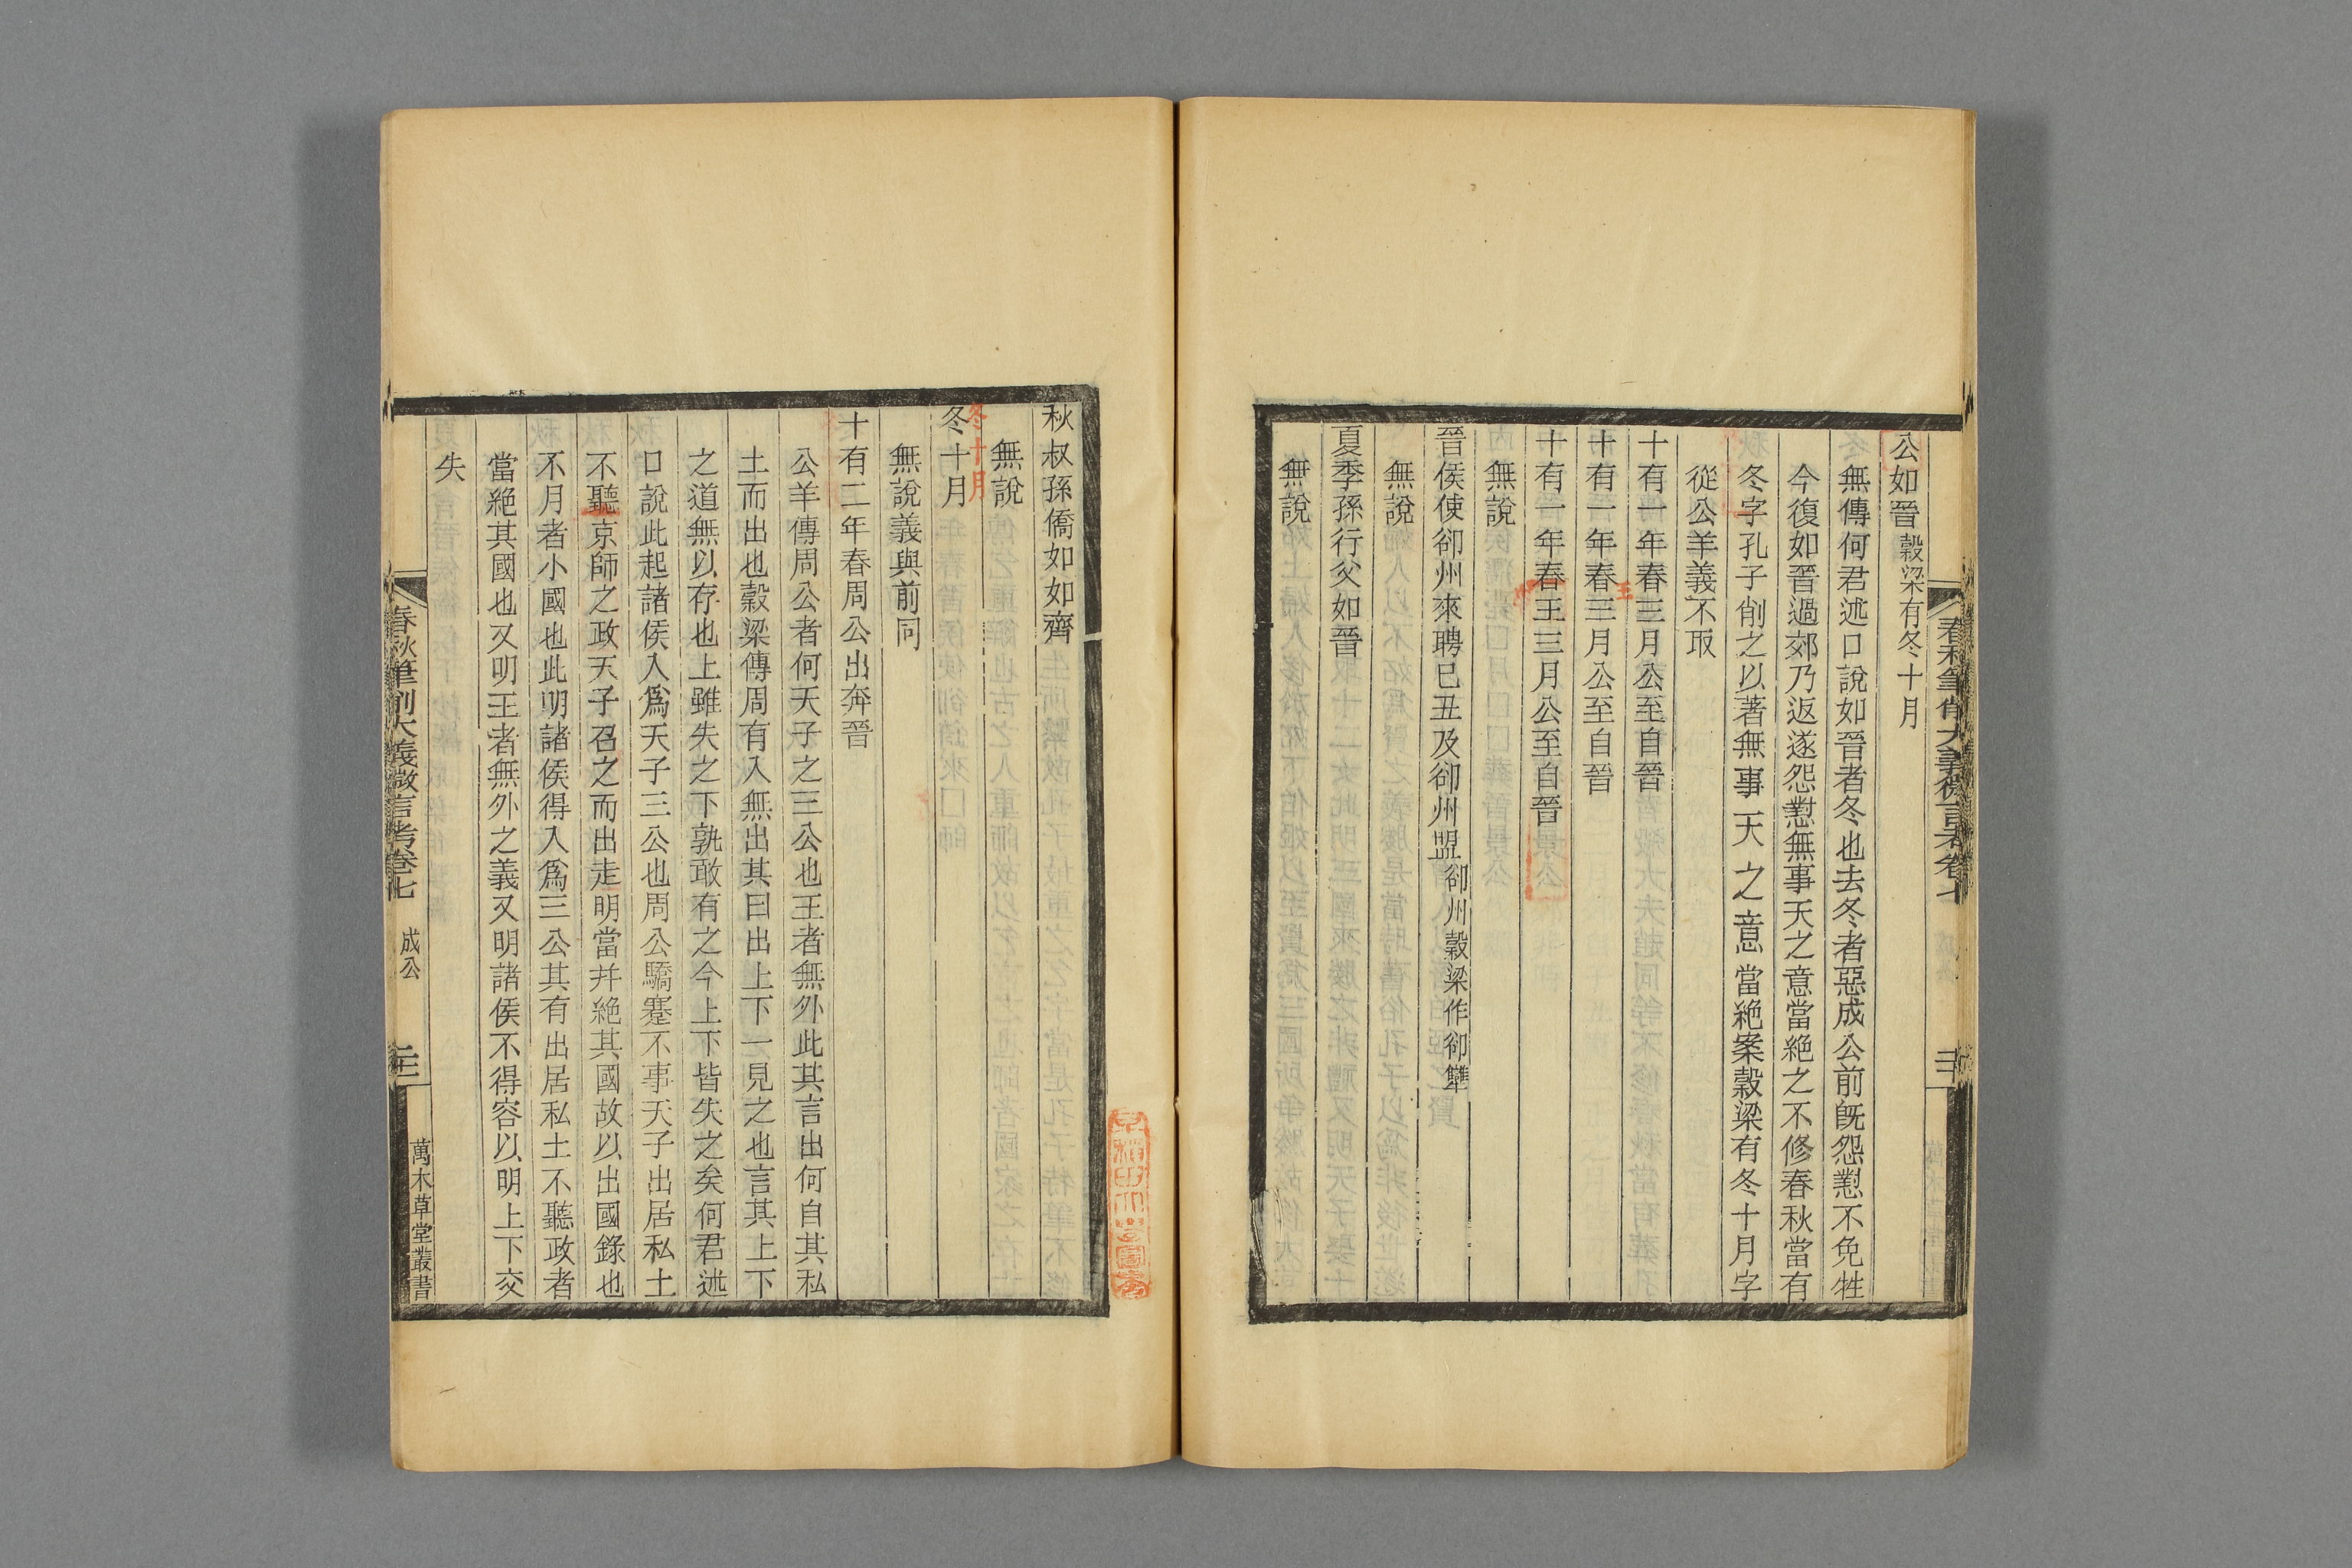 春秋筆削大義微言考卷七
公如晉 穀梁有冬十月
無傳何君述口說如晉者冬也去冬者惡成公前旣怨懟不免牲
今復如晉過郊乃返遂怨懟無事天之意當絶之不修春秋當有
冬字孔子削之以著無事天之意當絶案穀梁有冬十月字
從公羊義不取
十有一年春三月公至自晉
十有一年春三月公至自晉
十有一年春王三月公至自晉
無說
晉侯使郤州來聘巳丑及郤州盟 郤州穀梁作郤犫
無說
夏季孫行父如晉
無說
秋叔孫僑如如齊
無說
冬十月
冬十月
無說義與前同
十有二年春周公出奔晉
公羊傳周公者何天子之三公也王者無外此其言出何自其私
土而出也穀梁傳周有入無出其曰出上下一見之也言其上下
之道無以存也上雖失之下孰敢有之今上下皆失之矣何君述
口說此起諸侯入爲天子三公也周公驕蹇不事天子出居私土
不聽京師之政天子召之而出走明當幷絶其國故以出國錄也
不月者小國也此明諸侯得入爲三公其有出居私土不聽政者
當絶其國也又明王者無外之義又明諸侯不得容以明上下交
失
春秋筆削大義微言考卷七 成公
萬木草堂叢書